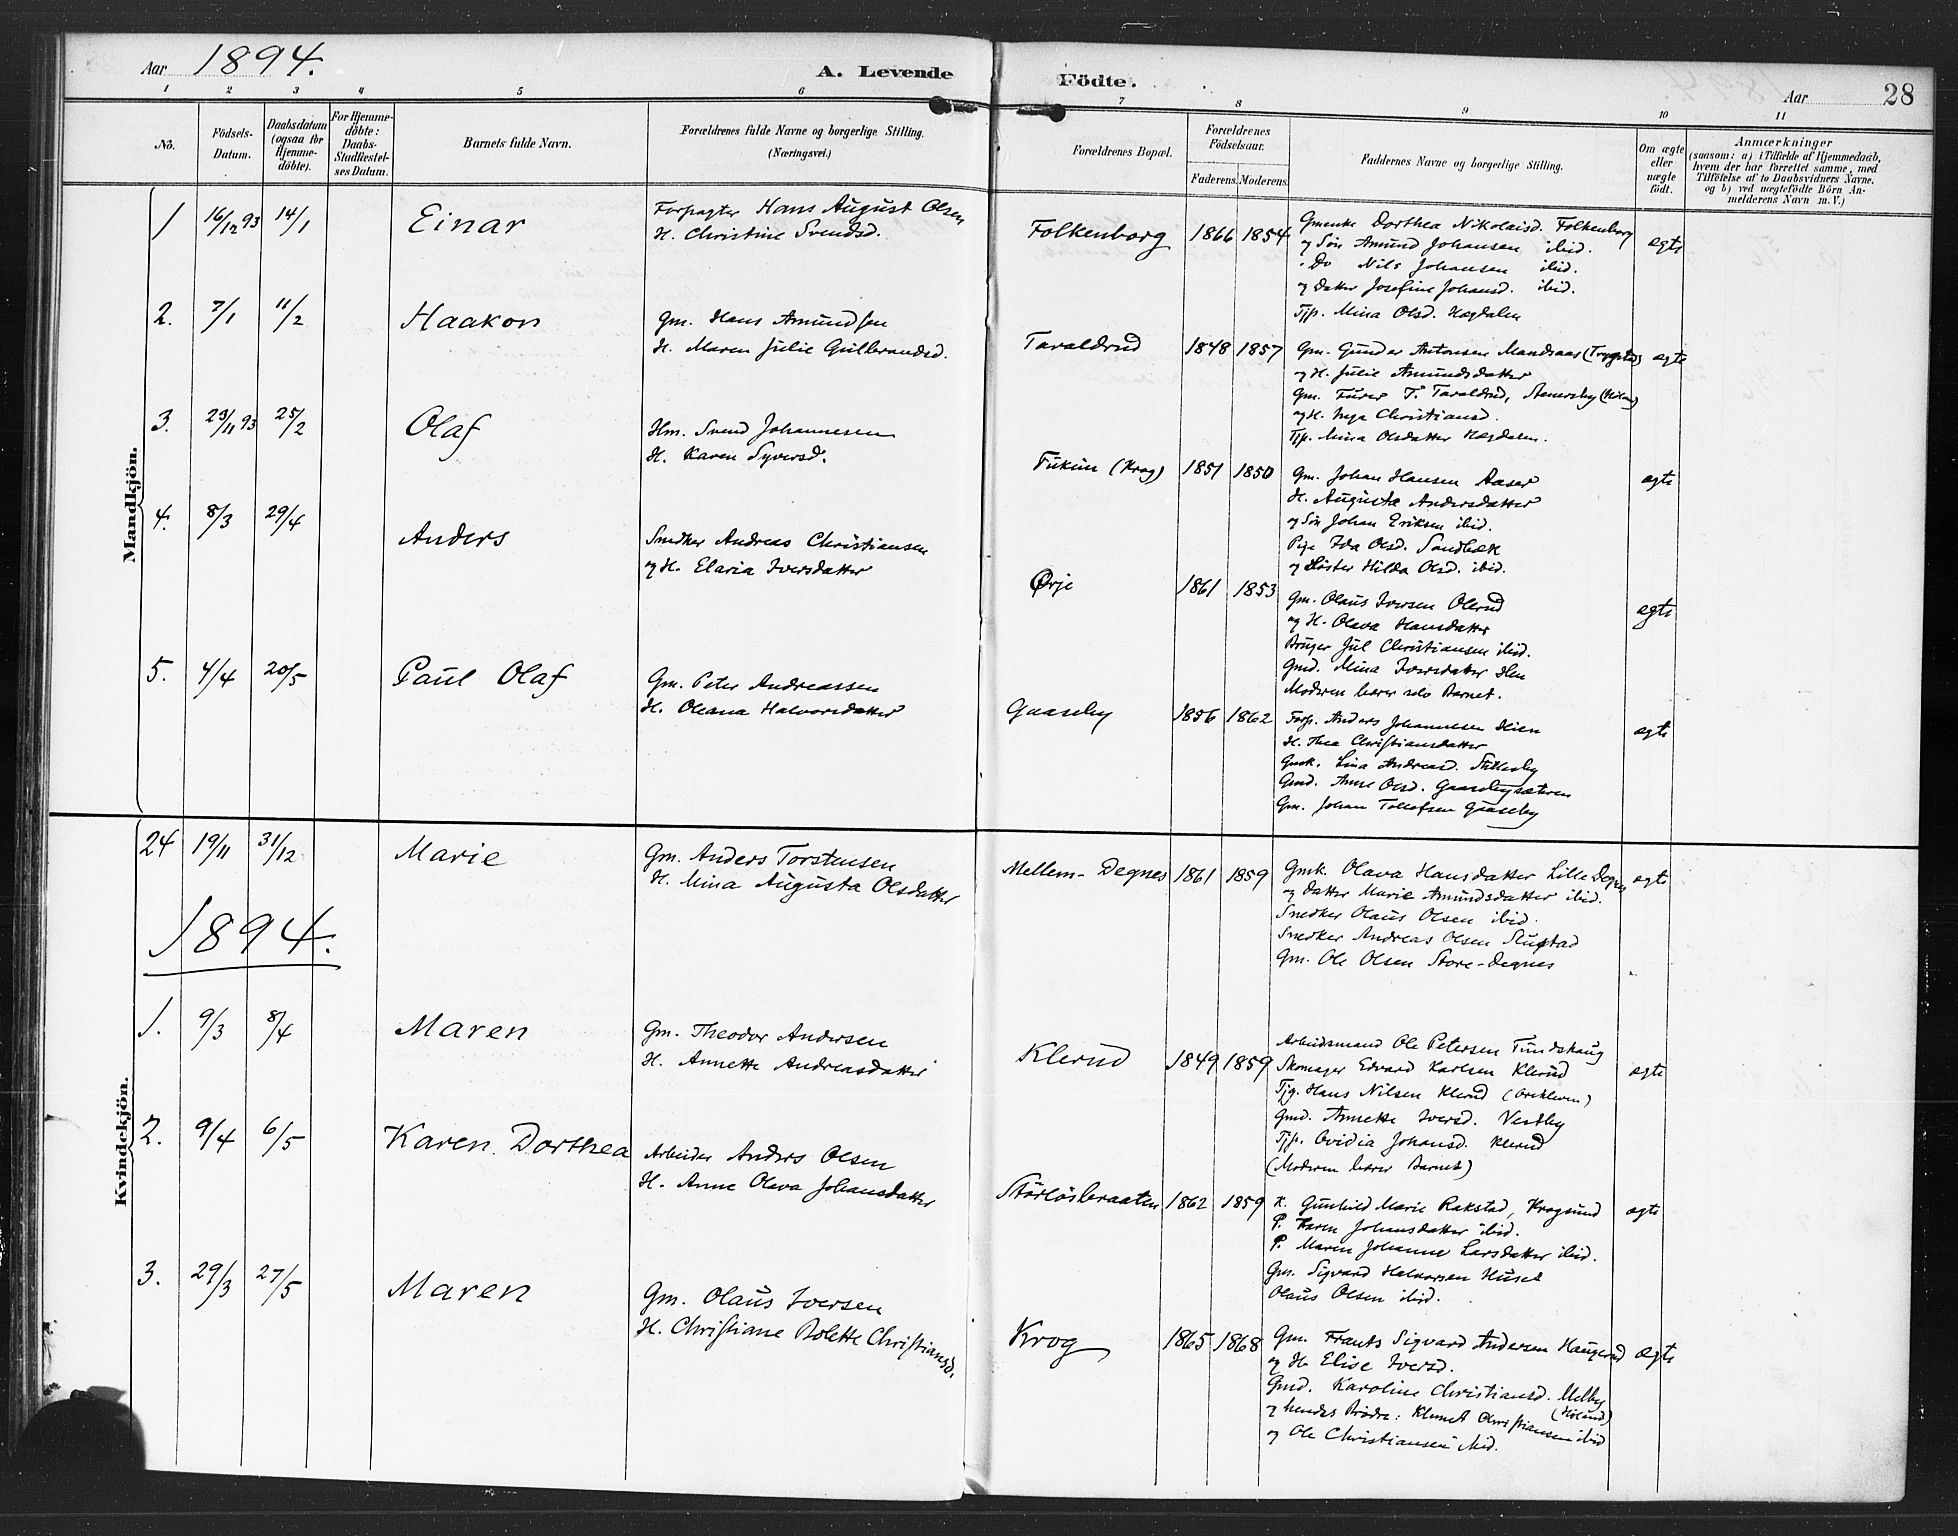 Aar 1894.
A. Levende
Födte.
Aar 28
1 2 3 4 5 6 7 8 9 10 11
Nö.
Födsels-
Datum.
Daabsdatum
(ogsaa for
Hjemme-
döbte).
For Hjemme-
döbte:
Daabs-
Stadfæstel-
ses Datum.
Barnets fulde Navn.
Forældrenes fulde Navne og borgerlige Stilling.
(Næringsvei.)
Forældrenes Bopæl.
Forældrenes
Födselsaar.
Faderens. Moderens.
Faddernes Navne og borgerlige Stilling.
Om ægte
eller
uægte
födt.
Anmærkninger
(saasom: a) i Tilfælde af Hjemmedaab,
hvem der har forrettet samme, med
Tilföielse af to Daabsvidners Navne,
og b) ved uægtefödte Börn An-
melderens Navn m. V.)
Mandkjön.
1 16/12 93 14/1 Einar
Forpagter Hans August Olsen
H. Christine Svendsd.
Folkenborg 1866 1854
Gmenke Dorthea Nikolaisd. Folkenborg
og Sön Amund Johansen ibid.
. Do Nils Johansen ibid.
og Datter Josefine Johansd. ibid.
Tjp. Mina Olsd. Hægdalen
ægte
2. 7/1 11/2 Haakon
Gm. Hans Amundsen
H. Maren Julie Gulbrandsd.
Taraldrud 1848 1857
Gm. Gunder Antonsen Mandsaas (Trygstad)
og H. Julie Amundsdatter
Gm. Furer T. Taraldrud, Stenersby (Höland)
og H. Inga Christiansd.
Tjp. Mina Olsdatter Hægdalen.
ægte
3. 23/11 93 25/2 Olaf
Hm. Svend Johannesen
H. Karen Syversd.
Tukun (Krog) 1851 1850
Gm. Johan Hansen Aaser
H. Augusta Andersdatter
og Sön Johan Eriksen ibid.
Pige Ida Olsd. Sandbæk
og Söster Hilda Olsd. ibid.
ægte
4. 8/3 29/4 Anders
Snedker Andreas Christiansen
og H. Elaria Iversdatter
Ørje 1861 1853
Gm. Olaus Iversen Olerud
og H. Olava Hansdatter
Bruger Jul Christiansen ibid.
Gmd. Mina Iversdatter Hen
Moderen bærer selv Barnet.
ægte
5. 4/4 20/5 Paul Olaf
Gm. Peter Andreassen
H. Oleana Halvorsdatter
Gaaseby 1856 1862
Forp. Anders Johannesen Hien
H. Thea Christiansdatter
Gmk. Lina Andreasd. Stillesby
Gmd. Anne Olsd. Gaasebysæteren
Gm. Johan Tollefsen Gaaseby
ægte
Kvindekjön.
24 19/11 31/12 Marie
Gm. Anders Torstensen
H. Mina Augusta Olsdatter
Mellem-Degnes 1861 1859
Gmk. Olava Hansdatter Lille Degnes
og Datter Marie Amundsdatter ibid.
Snedker Olaus Olsen ibid.
Snedker Andreas Olsen Slupstad
Gm. Ole Olsen Store-Degnes
ægte
1894.
1. 9/3 8/4 Maren
Gm. Theodor Andersen
H. Annette Andreasdatter
Klerud 1849 1859
Arbeidsmand Ole Petersen Tundshaug
Skomager Edvard Karlsen Klerud
Tjg. Hans Nilsen Klerud
Gmd. Annette Iversd. Vestby
Tjp. Ovidia Johansd. Klerud
(Moderen bærer Barnet)
ægte
2. 9/4 6/5 Karen Dorthea
Arbeider Anders Olsen
H. Anne Olava Johansdatter
Störlösbraaten 1862 1859
K. Gunhild Marie Rakstad, Krogsund
P. Karen Johansdatter ibid.
P. Maren Johanne Larsdatter ibid.
Gm. Sigvard Halvorsen Huset
Olaus Olsen ibid.
ægte
3. 29/3 27/5 Maren
Gm. Olaus Iversen
H. Christiane Bolette Christiansd.
Krog 1865 1868
Gm. Frants Sigvard Andersen Haugerud
og H. Elise Iversd.
Gmd. Karoline Christiansd. Melby
(Höland)
og hendes Brödre: Klemet Christiansen ibid
og Ole Christiansen ibid.
ægte